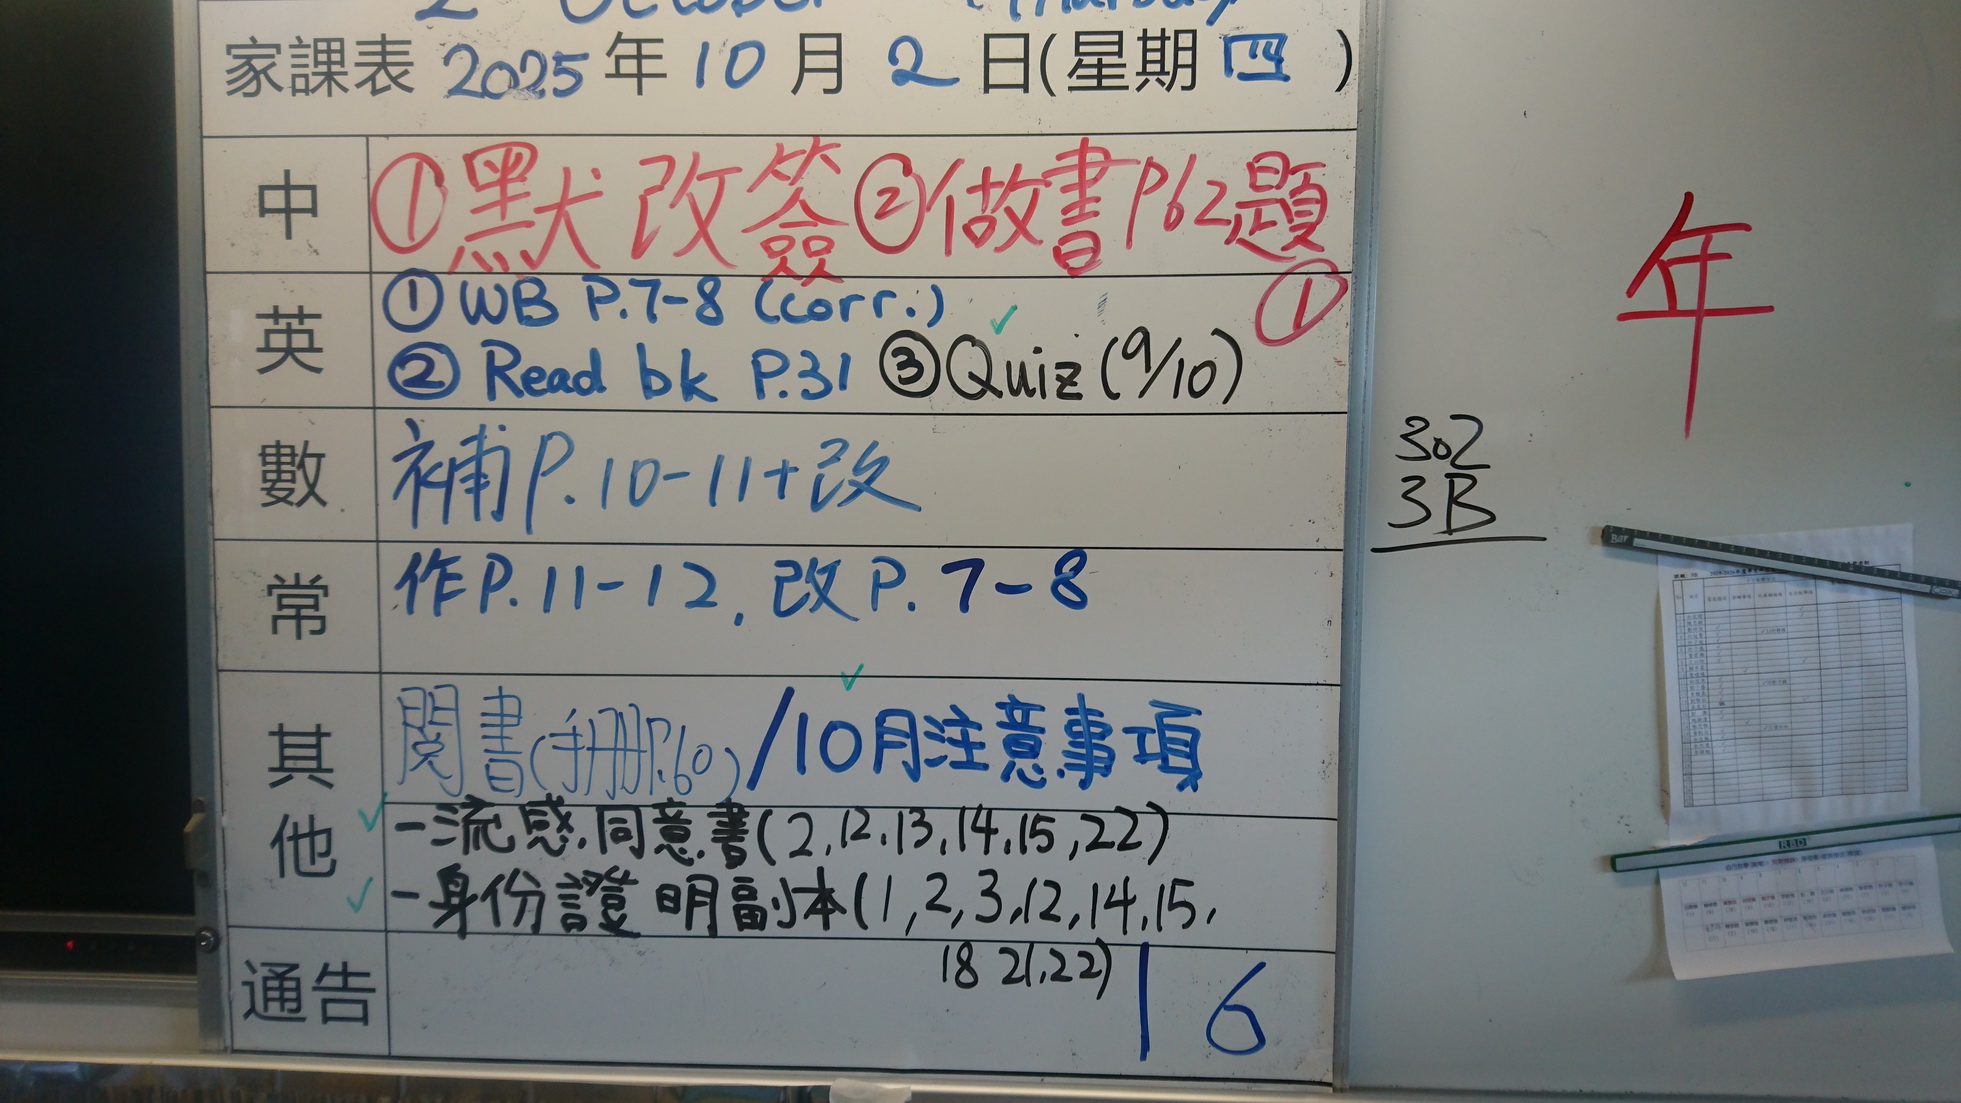 2 October Thursday
家課表 2025年 10月 2日(星期四)
中 ①默改簽②做書P62題①
英 ①WB P.7-8 (corr.)
②Read bk P.31 ③Quiz(9/10)
數 補P.10-11+改
常 作P.11-12. 改P.7-8
其他 閱書(手冊P.60)/10月注意事項
-流感.同意書(2,12.13,14.15,22)
-身份證明副本(1,2,3.12,14,15.
18 21.22)
通告 16
年
302
3B